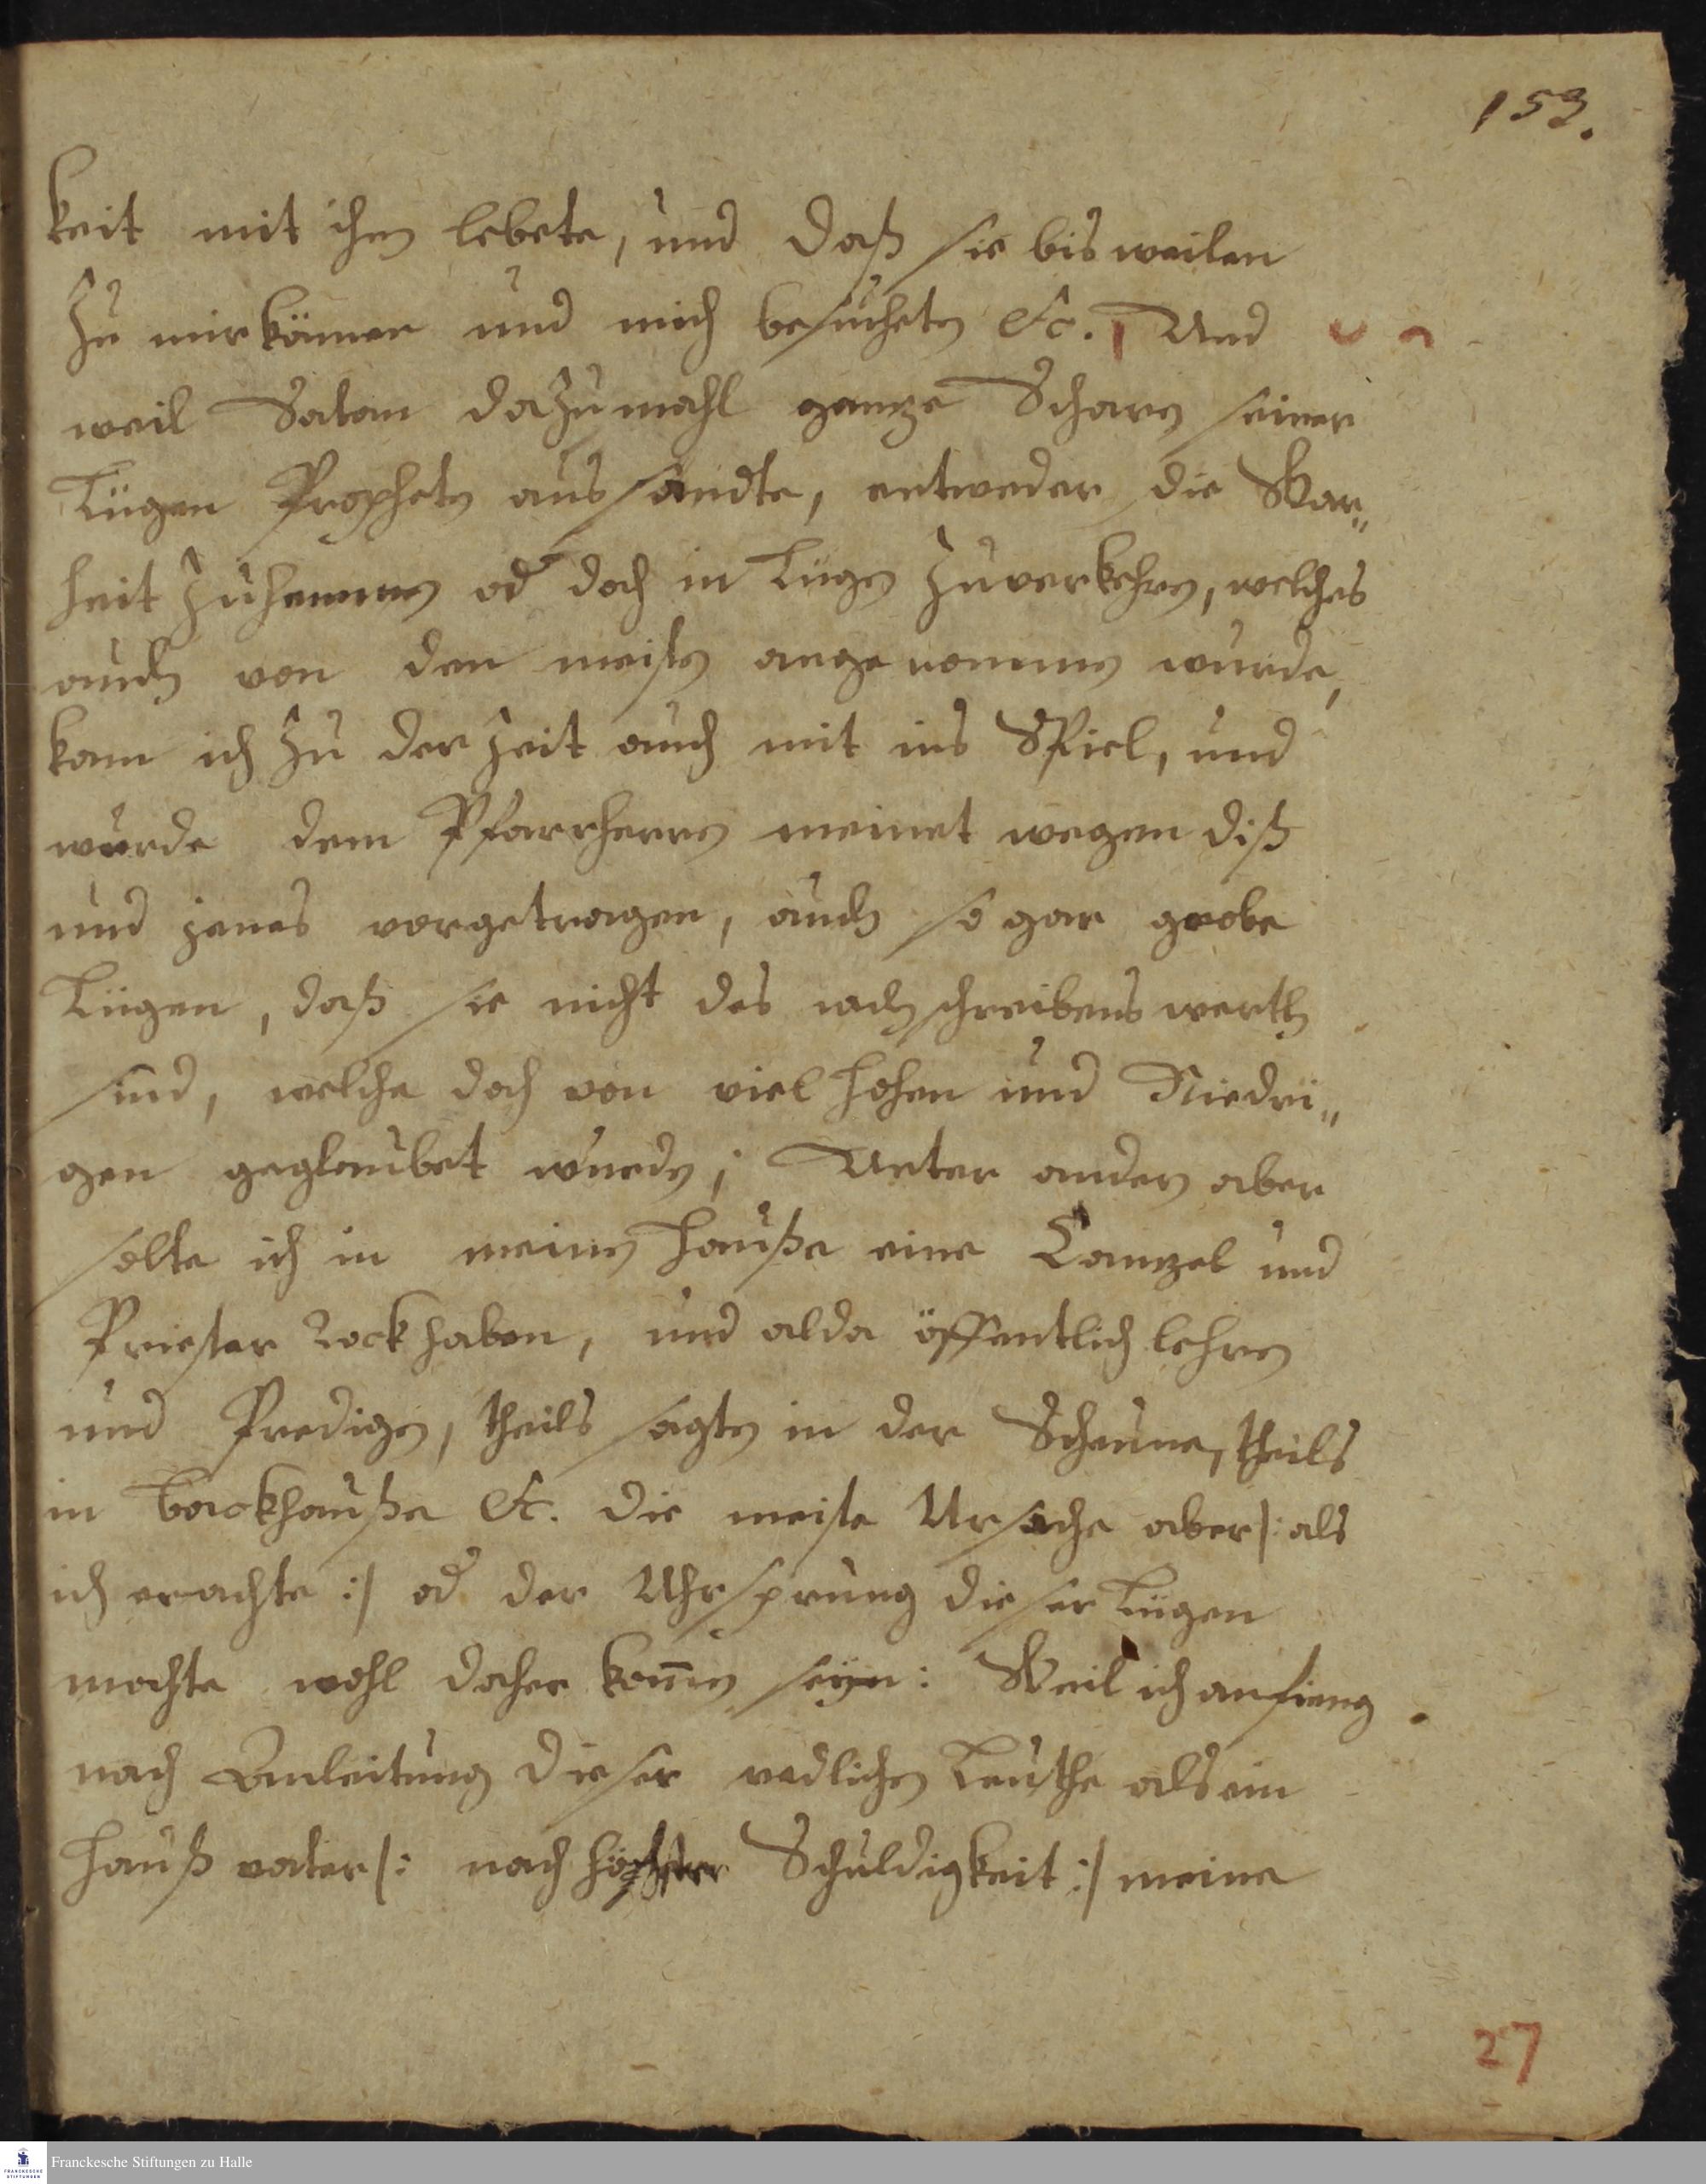 153.
keit mit ihm lebete, und daß sie bisweilen
zu mir kämen und mich besuchten etc. Und
weil Satan dazumahl gantze Scharen seiner
Lügen Propheten aussandte, entweder die War„
heit zuhemmen od doch in Lügen zuverkehren, welches
auch von den meisten angenommen wurde,
kam ich zu der Zeit auch mit ins Spiel, und
wurde dem Pfarrherren meinet wegen diß
und jenes vorgetragen, auch so gar grobe
Lügen, daß sie nicht des nachschreibens werth
sind, welche doch von viel hohen und Niedri„
gen geglaubet wurden; Unter andern aber
solte ich in meinem Hauße eine Cantzel und
Priester Rock haben, und alda öffentlich lehren
und Predigen, theils sagten in der Scheune, theils
in backhauße etc. die meiste Ursache aber /: als
ich erachte :/ od der Uhrsprung dieser Lügen
mochte wohl daher kom̄en seÿn: Weil ich anfieng
nach Anleitung dieser redlichen Leuthe als ein
Hauß vater /: nach höchster Schuldigkeit :/ meine
27
Franckesche Stiftungen zu Halle